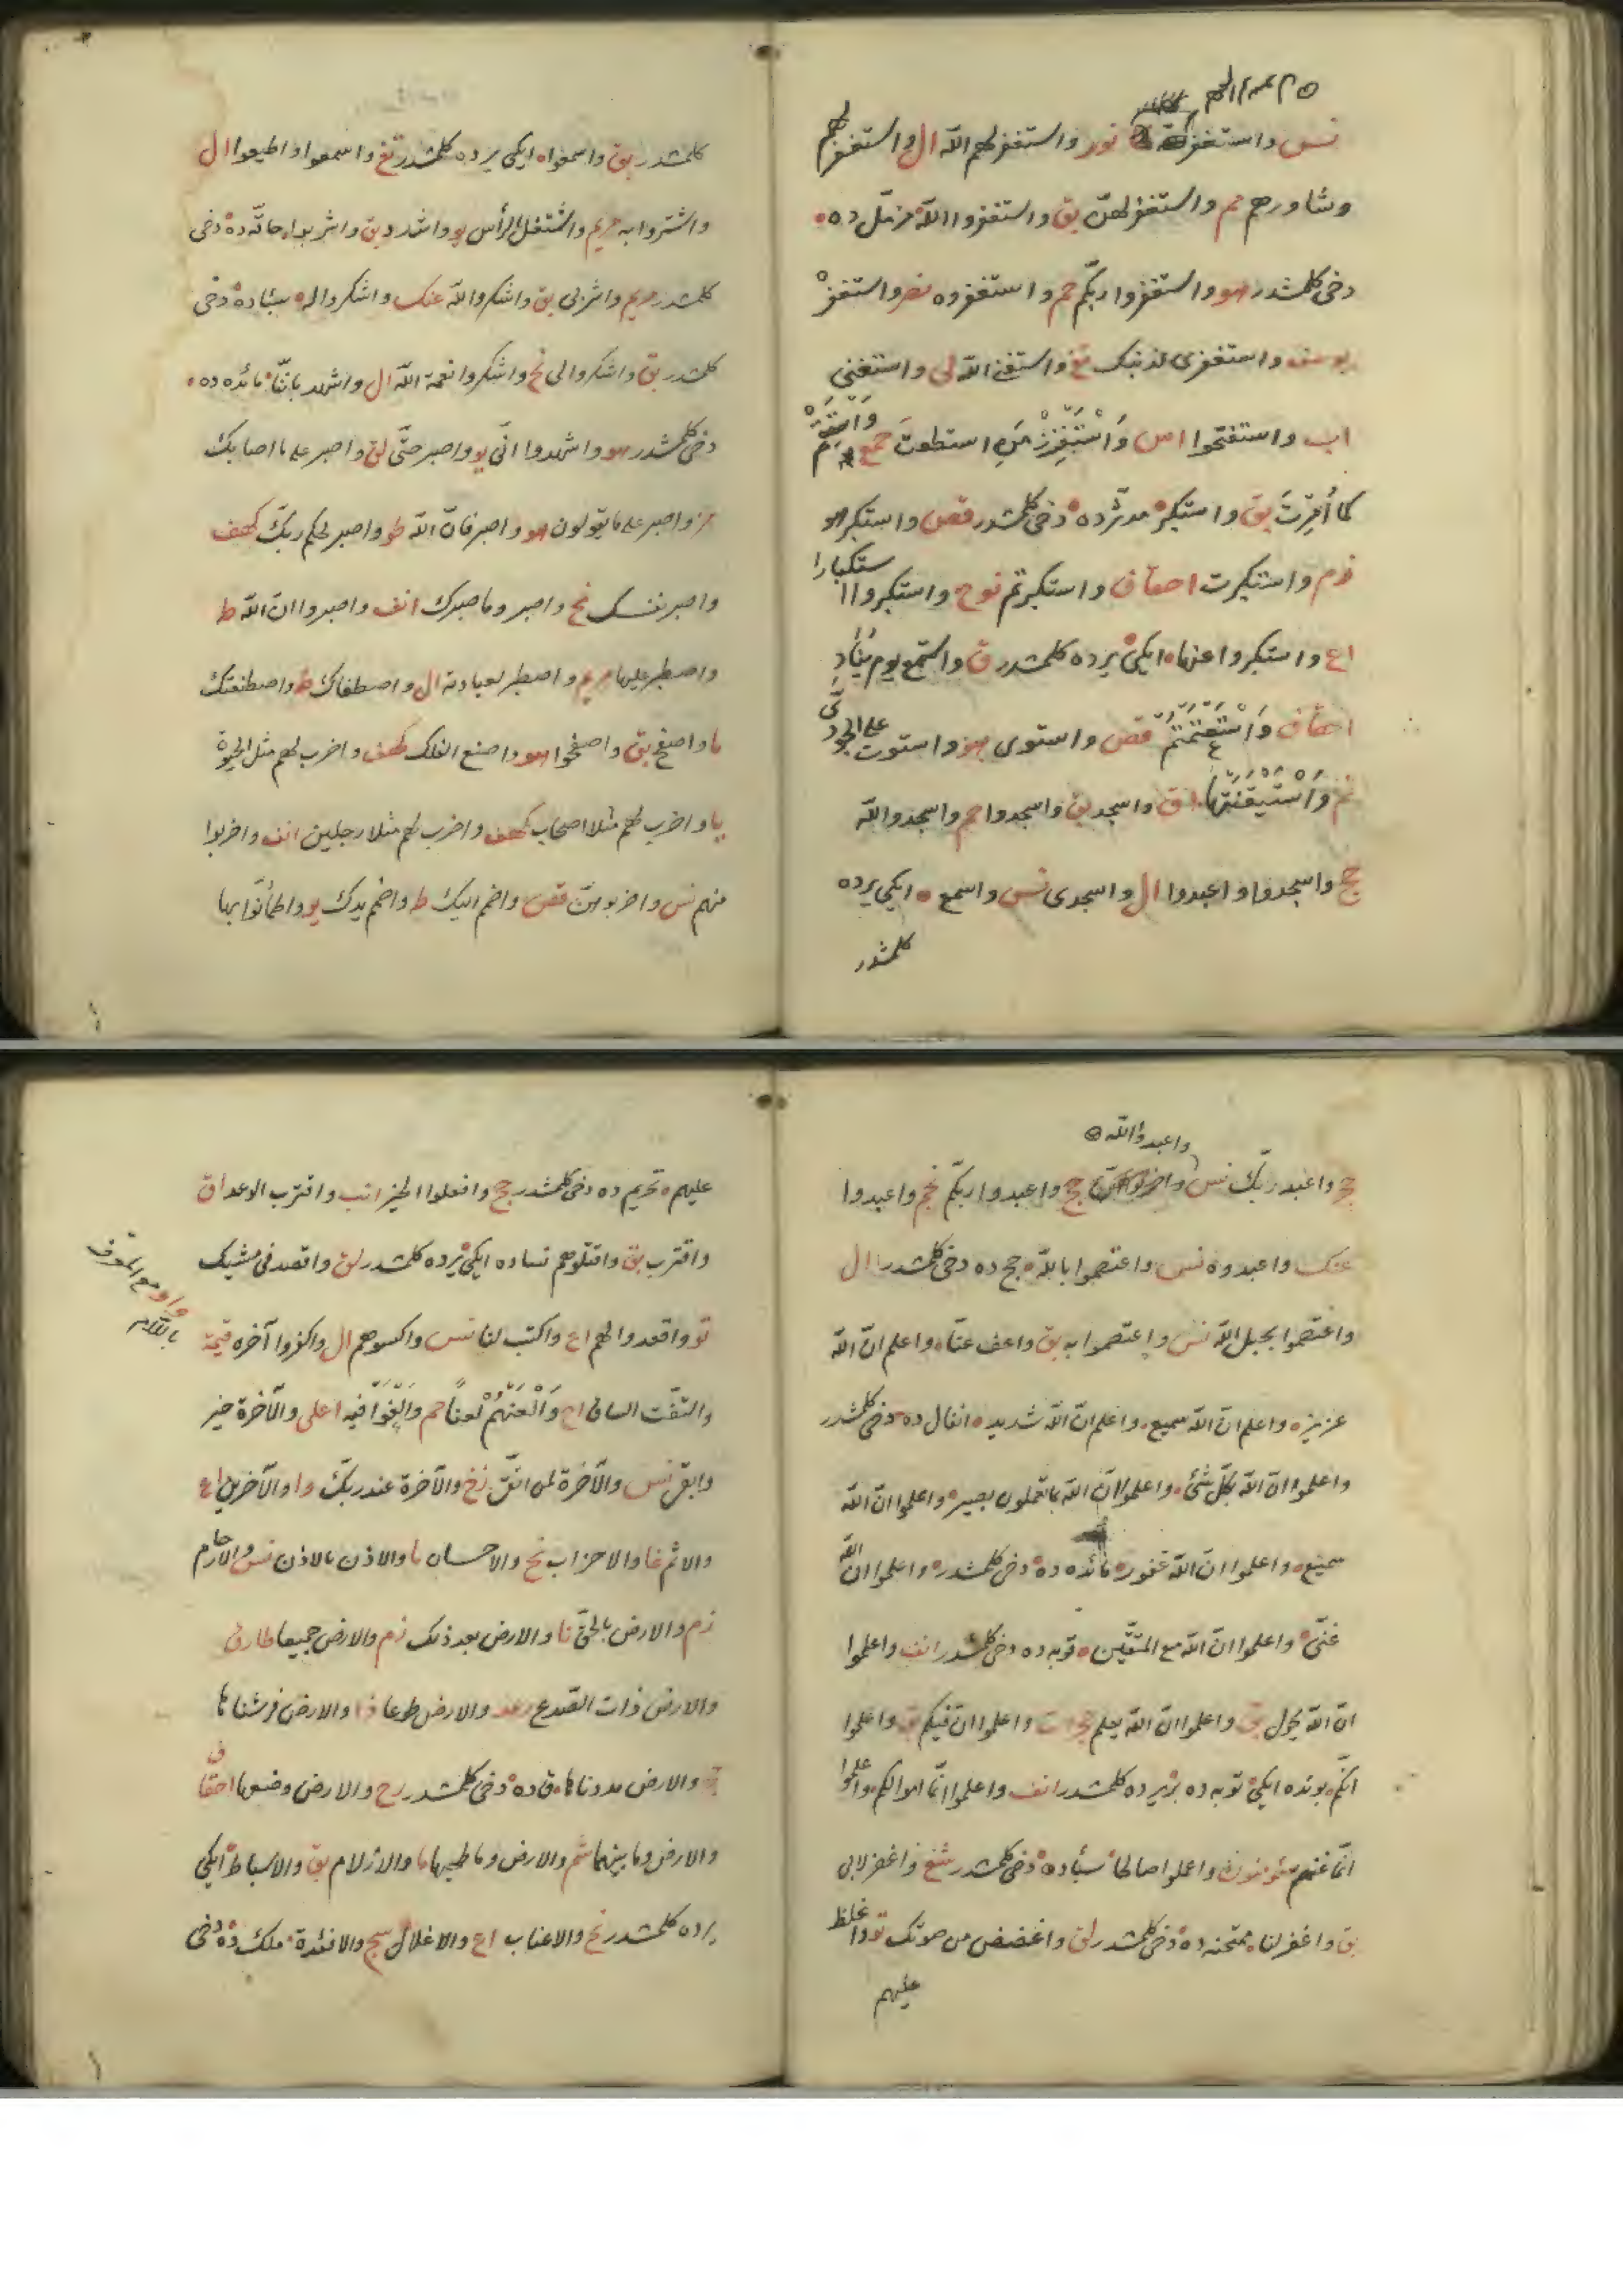 نس واستغفر نور واستغفر لهم الله ال واستغفر لهم
وشاورهم حم واستغفر لهنّ بق واستغفروا اللّه مزمّل ده
دخی کلمشدر هو واستغفروا ربّکم حم واستغفره نصر واستغفر
یوسف واستغفری لذنبک تغ واستغن اللّه لی واستغنی
اب واستفتحوا اس وَاسْتَفْزِزْ مَنِ استطعتَ حمع وَاسْتَقِمْ
کما أُمِرْتَ بق واستکبر مدثّر ده دخی کلمشدر قصص واستکبر هو
زم واستکبرت احقاف واستکبرتم نوح واستکبروا استکبارا
اع واستکبروا عنها ایکی یرده کلمشدر ق واستمع یوم ینادِ
احقاف وَاسْتَمْتَعْتُمْ قصص واستوی هو واستوت علی الجودیّ
نم وَاسْتَيْقَنَتْها اق واسجد بق واسجدوا حم واسجدوا للّه
حج واسجدوا واعبدوا ال واسجدی نس واسمع ایکی یرده
کلمشدر
کلمشدر بق واسمعوا ایکی یرده کلمشدر تغ واسمعوا واطیعوا ال
واشتروا به مریم واشتعل الرأس یو واشدد بق واشربوا حاقّه ده دخی
کلمشدر مریم واشربی بق واشکروا للّه عنک واشکروا له سبٲ ده دخی
کلمشدر بق واشکروا لی نح واشکروا نعمة اللّه ال واشهد بانّنا مائده ده
دخی کلمشدر هو واشهدوا انّی یو واصبر حتّی لق واصبر علی ما اصابک
مز واصبر علی ما یقولون هو واصبر فانّ اللّه طو واصبر لحکم ربّک کهف
واصبر نفسک نح واصبر وما صبرک انف واصبروا انّ اللّه ط
واصطبر علیها مریم واصطبر لعبادته ال واصطفاک ط واصطنعتک
ما واصفح بق واصفحوا هو واصنع الفلک کهف واضرب لهم مثل الحیوة
یا واضرب لهم مثلا اصحاب کهف واضرب لهم مثلا رجلین انف واضربوا
منهم نس واضربوهنّ قصص واضمم الیک ط واضمم یدک یو واطمأنّوا بها
واعبدوا اللّه
حج واعبد ربّک نس حج واعبدوا ربّکم نجم واعبدوا
عنک واعبدوه نس واعتصموا باللّه حج ده دخی کلمشدر ال
واعتصموا بحبل اللّه نس واعتصموا به بق واعف عنّا واعلم انّ اللّه
عزیز واعلم انّ اللّه سمیع واعلم انّ اللّه شدید انفال ده دخی کلمشدر
واعلموا انّ اللّه بکلّ شئ واعلموا انّ اللّه بما تعملون بصیر واعلموا انّ اللّه
سمیع واعلموا انّ اللّه غفور مائده ده دخی کلمشدر واعلموا انّ اللّه
غنیّ واعلموا انّ اللّه مع المتّقین توبه ده دخی کلمشدر انف واعلموا
انّ اللّه یحول بق واعلموا انّ اللّه یعلم حجرات واعلموا انّ فیکم بق واعلموا
انّکم بونده ایکی توبه ده بر یرده کلمشدر انف واعلموا انّما اموالکم واعلموا
انّما غنمتم مؤمنون واعملوا صالحا سبٲ ده دخی کلمشدر شع واغفر لابی
بق واغفر لنا ممتحنه ده دخی کلمشدر لق واغضض من صوتک تو واغلظ
علیهم
علیهم تحریم ده دخی کلمشدر حج وافعلوا الخیر انب واقترب الوعد اق
واقترب بق واقتلوهم نساده ایکی یرده کلمشدر لق واقصد فی مشیک
تو واقعدوا لهم اع واکتب لنا نس واکسوهم ال واکفروا آخره قیمة
والتفّت الساق اح وَالْعَنْهُمْ لَعْنًا حم وَالْغَوْا فیه اعلی والآخرة خیر
وابقی نس والآخرة لمن اتّقی زخ والآخرة عند ربّک وا والآخرین اع
والاثم غا والاحزاب نح والاحسان ما والاذن بالاذن نس والارحام
زم والارض بالحقّ نا والارض بعد ذلک زم والارض جمیعا طارق
والارض ذات الصّدع رعد والارض طوعا ذا والارض فرشناها
والارض مددناها ق ده دخی کلمشدر رح والارض وضعها احقاف
والارض وما بینهما شم والارض وما طحیها ما والازلام بق والاسباط ایکی
یرده کلمشدر نح والاعناب اع والاغلال سج والافئدة ملک ده دخی
واو مع المعرّف
باللام